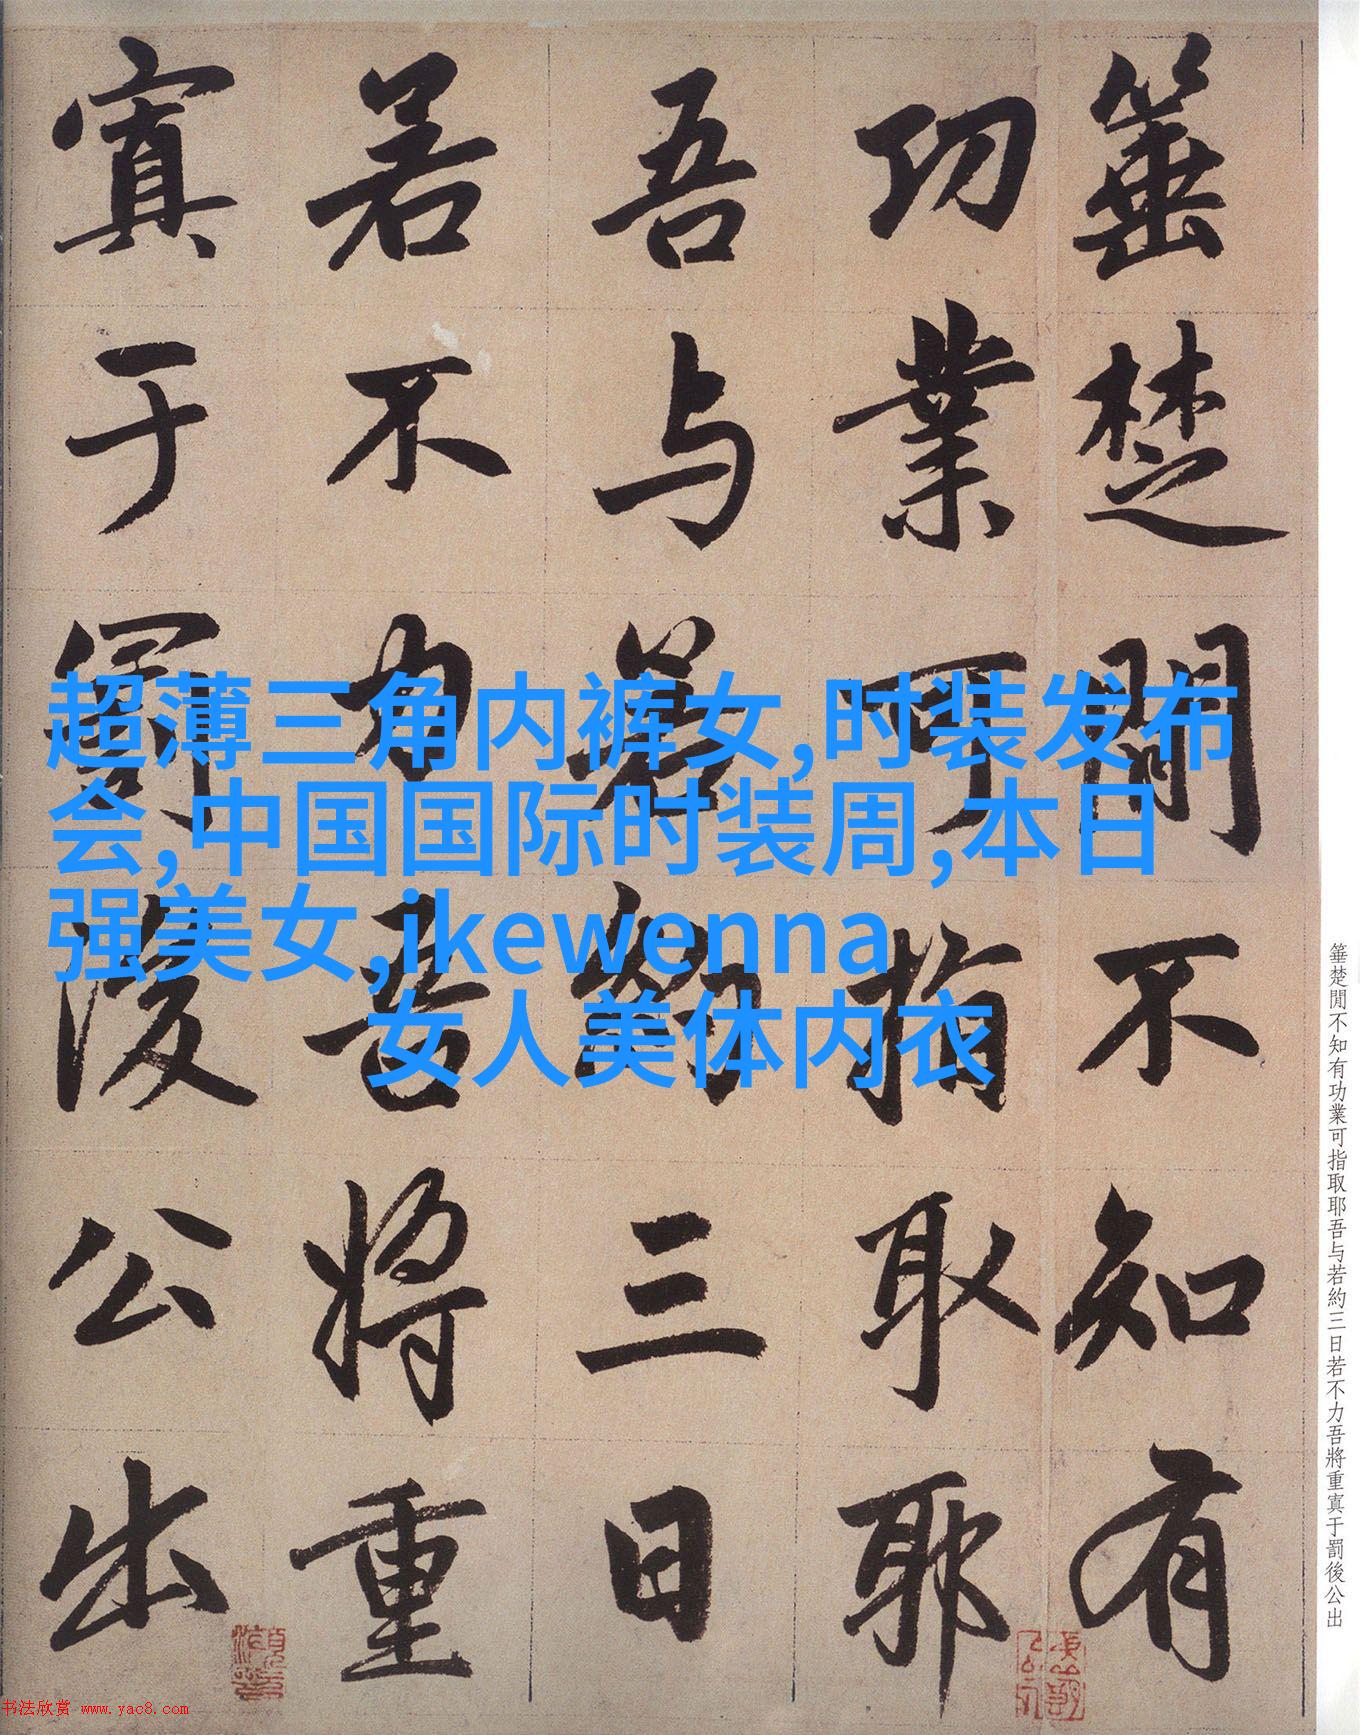 箠楚閒不知有
功業可指取耶
吾与若約三日
若不力吾將重
寘于罰後公出
超薄三角内裤女,时装发布
会,中国国际时装周,本日
强美女,ikewenna,
女人美体内衣
箠楚閒不知有功業可指取耶吾与若約三日若不力吾將重寘于罰後公出
书法欣赏 www.yac8.com